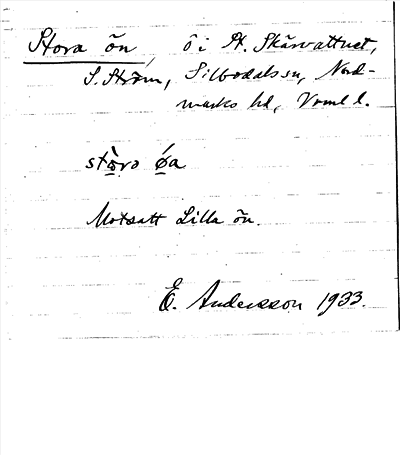 Stora ön, ö i St. Skärvattnet,
S. Ström, Silbodals sn, Nord-
marks hd, Vrml l.
stòro óa
Motsatt Lilla ön.
E. Andersson 1933.